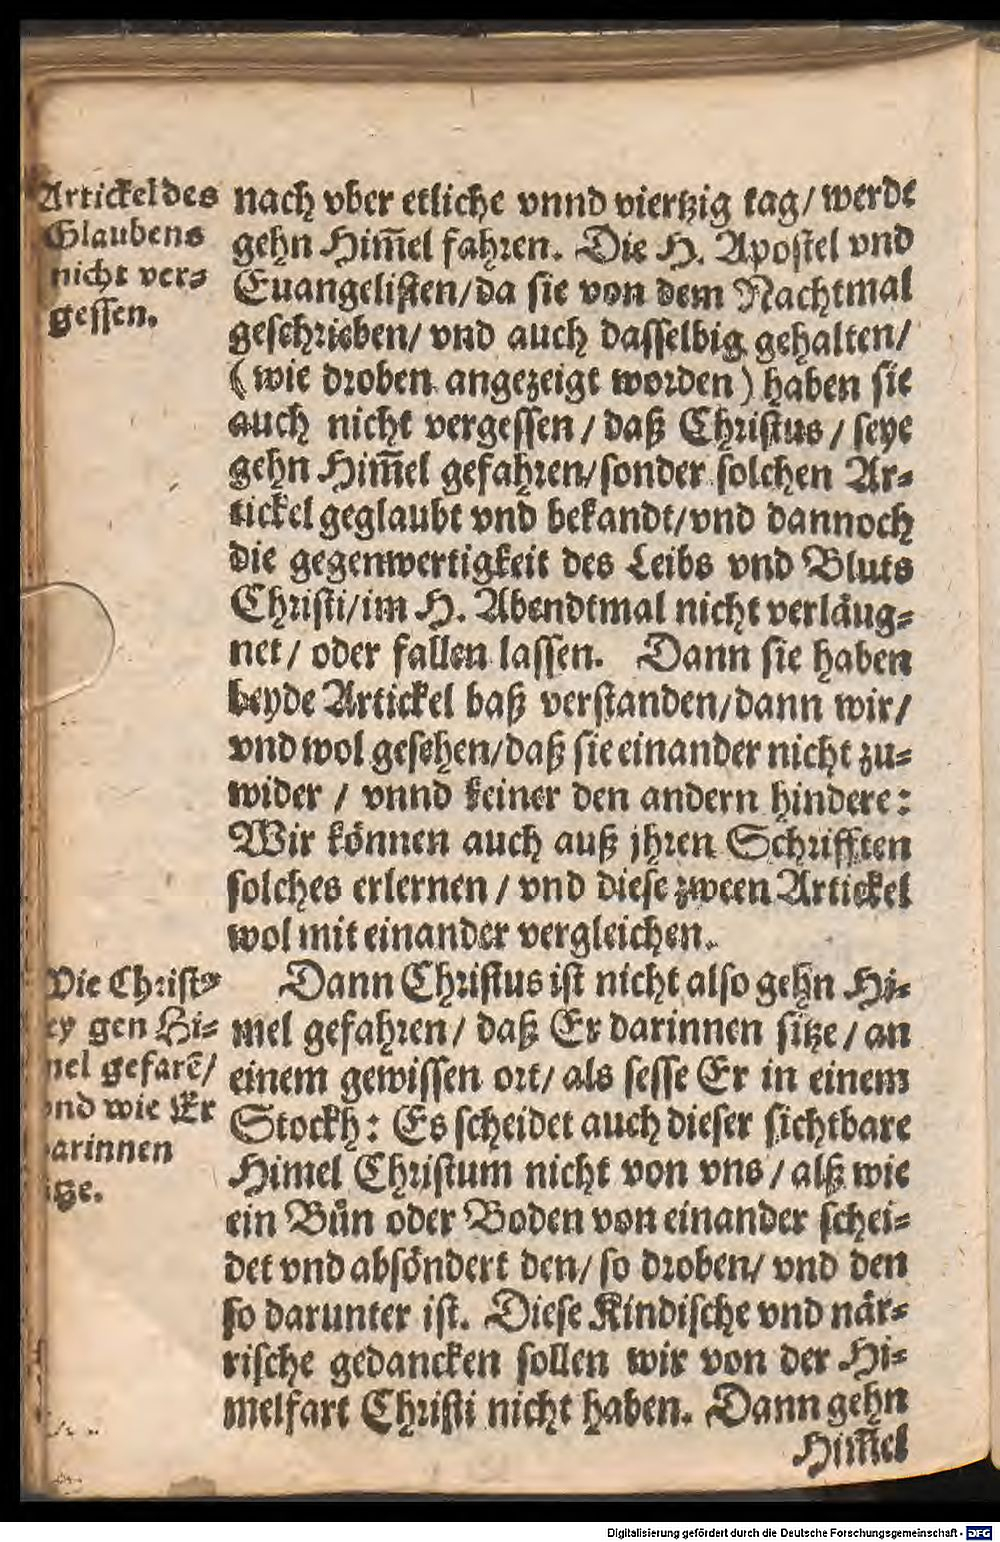 Artickel des
Glaubens
nicht ver⸗
gessen.
nach vber etliche vnnd viertzig tag/ werde
gehn Him̃el fahren. Die H. Apostel vnd
Euangelisten/ da sie von dem Nachtmal
geschrieben/ vnd auch dasselbig gehalten/
(wie droben angezeigt worden) haben sie
auch nicht vergessen / daß Christus / seye
gehn Him̃el gefahren/ sonder solchen Ar⸗
tickel geglaubt vnd bekandt/ vnd dannoch
die gegenwertigkeit des Leibs vnd Bluts
Christi/ im H. Abendtmal nicht verläug⸗
net / oder fallen lassen. Dann sie haben
beyde Artickel baß verstanden/ dann wir/
vnd wol gesehen/ daß sie einander nicht zu⸗
wider / vnnd keiner den andern hindere:
Wir können auch auß jhren Schrifften
solches erlernen / vnd diese zween Artickel
wol mit einander vergleichen.
Wie Christ⸗
ey gen Hi⸗
mel gefarẽ/
vnd wie Er
darinnen
itze.
Dann Christus ist nicht also gehn Hi⸗
mel gefahren / daß Er darinnen sitze / an
einem gewissen ort/ als sesse Er in einem
Stockh: Es scheidet auch dieser sichtbare
Himel Christum nicht von vns / alß wie
ein Bůn oder Boden von einander schei⸗
det vnd absöndert den/ so droben/ vnd den
so darunter ist. Diese Kindische vnd när⸗
rische gedancken sollen wir von der Hi⸗
melfart Christi nicht haben. Dann gehn
Him̃el
Digitalisierung gefördert durch die Deutsche Forschungsgemeinschaft - DFG